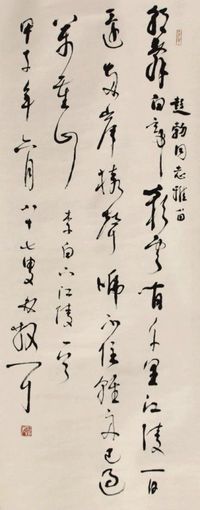 同志雅
朝辞白帝彩云间千里江陵一日
還兩岸猿聲啼不住輕舟已過
萬重山 李白下江陵一首
甲子年六月八十七叟林散耳